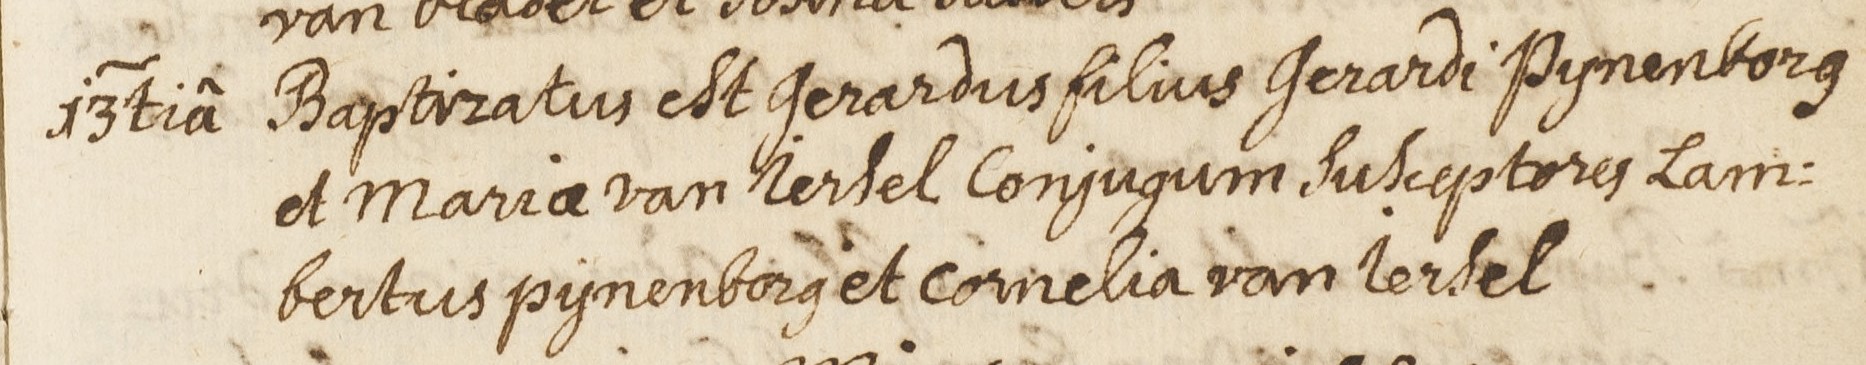 van
13tiâ Baptizatus est Gerardus filius Gerardi Pynenborg
et Mariæ van Iersel Conjugum Susceptores Lam:
bertus pijnenborg et Cornelia van Iersel